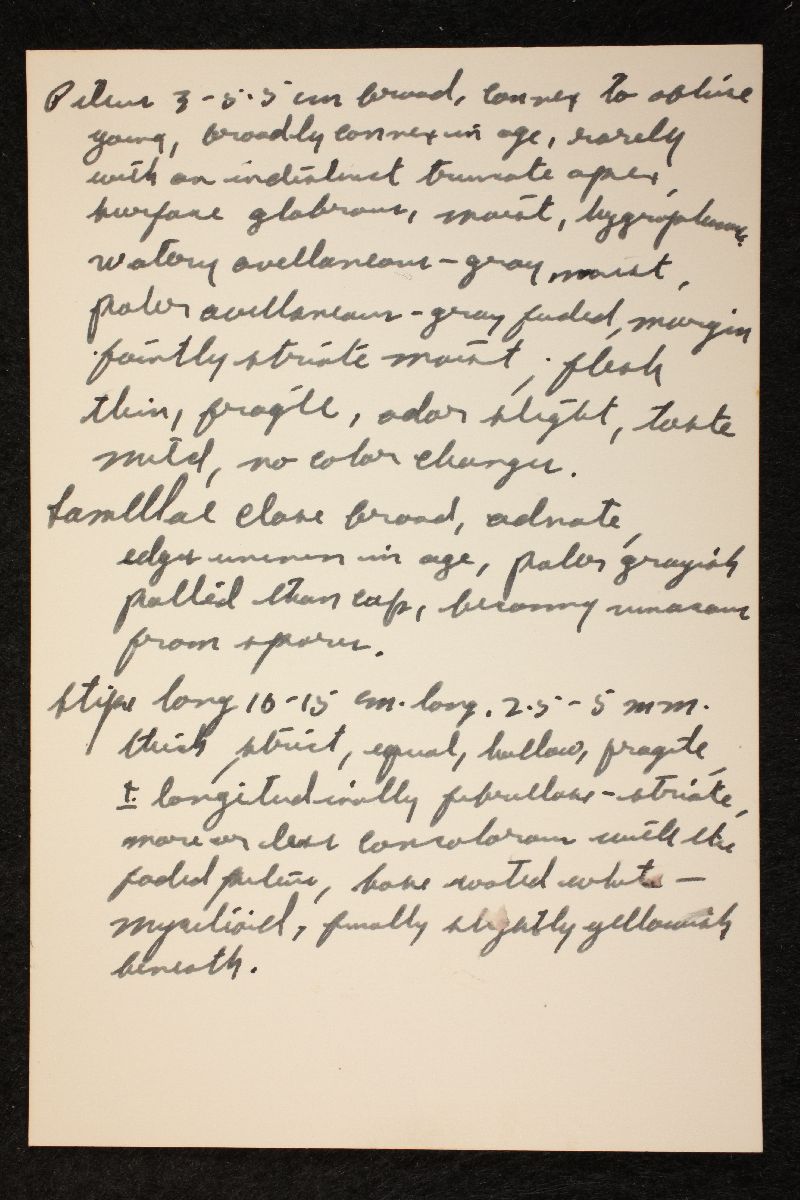 Pileus 3-5.5 cm broad, convex to obtuse
young, broadly convex in age, rarely
with an indistinct truncate apex,
surface glabrous, moist, hygrophanous.
watery avellaneous-gray moist,
paler avellaneous-gray faded, margin
faintly striate moist; flesh
thin, fragile, odor slight, taste
mild, no color changes.
Lamellae close broad, adnate,
edges uneven in age, paler grayish
pallid than cap, becoming vinaceous
from spores.
Stipe long 10-15 cm. long. 2.5-5 mm.
thick, strict, equal, hollow, fragile,
± longitudinally fibrillose-striate,
more or less concolorous with the
faded pileus, base rooted white-
myceliod, finally slightly yellowish
beneath.